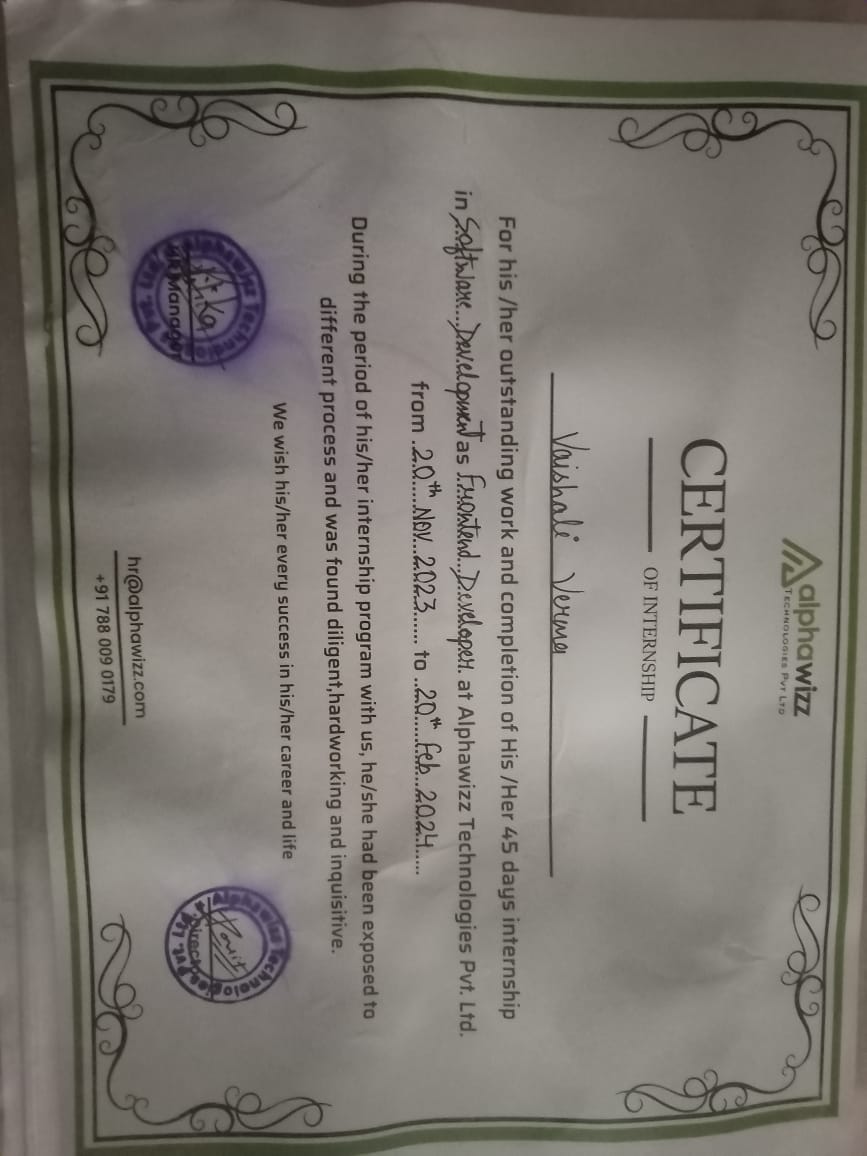 alphawizz
TECHNOLOGIES PVT LTD
CERTIFICATE
OF INTERNSHIP
Vaishali Verma
For his /her outstanding work and completion of His /Her 45 days internship
in Software Development as Frontend Developer. at Alphawizz Technologies Pvt. Ltd.
from 20th Nov 2023 to 20th Feb 2024
During the period of his/her internship program with us, he/she had been exposed to
different process and was found diligent,hardworking and inquisitive.
We wish his/her every success in his/her career and life
Alphawizz Technologies Pvt. Ltd.
HR Manager
Alphawizz Technologies Pvt. Ltd.
Director
hr@alphawizz.com
+91 788 009 0179